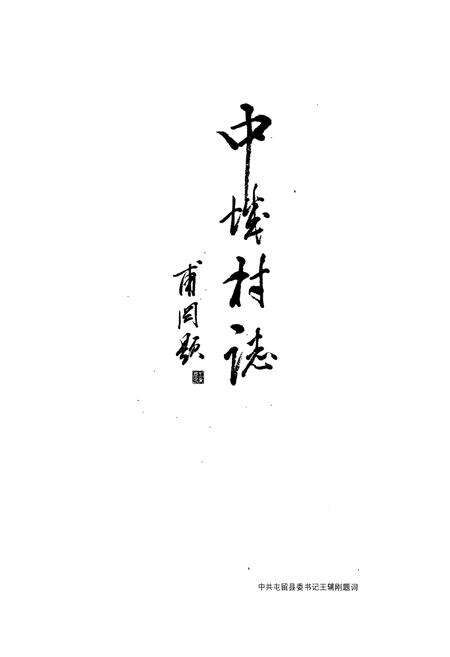 中村誌
甫题
中共屯留县委书记王辅刚题词